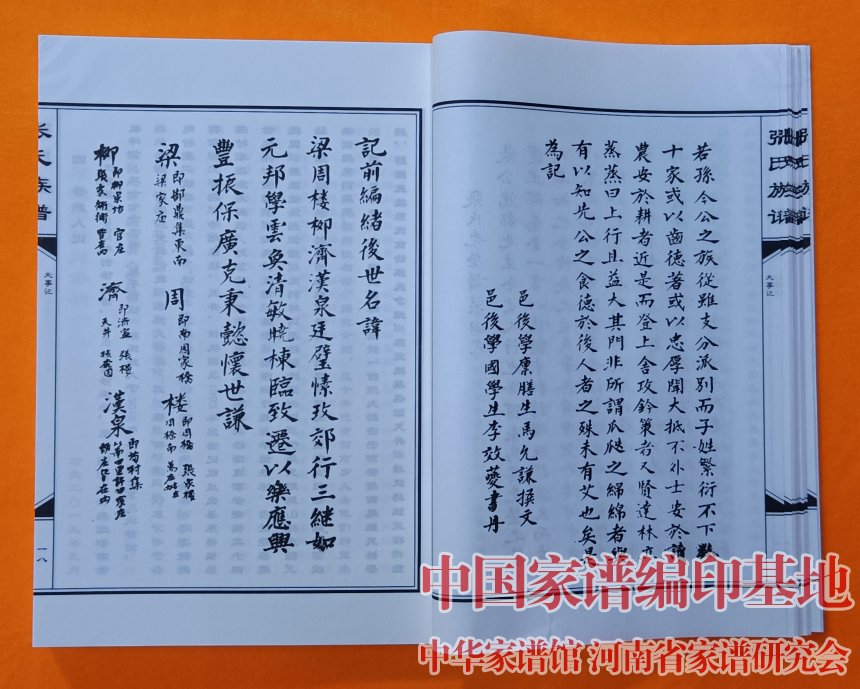 張氏族譜
大事记
若孫令公之族從雖支分派別而子姓繁衍不下數
十家或以齒德著或以忠厚聞大抵不外士安於讀
農安於耕者近是而登上舍攻鈐策者又賢達林立
蒸蒸日上行且益大其門非所謂瓜瓞之綿綿者與
有以知先公之食德於後人者之殊未有艾也矣是
為記
邑後學廩膳生馬允謙撰文
邑後學國學生李效蘷書丹
記前編緒後世名諱
梁周楼柳濟漢泉廷璧愫玫郊行三継如
元邦學雲奐清敏曉棟臨致遷以樂應興
豐振保廣克秉懿懷世謙
梁
即鄗鼎集東南
梁家庄
周
即南周家橋
楼
即周橋 張家楼
柳
即柳泉坊 官庄
濟
張楼
天井
漢泉
氏族譜
大事记
一八
中国家谱编印基地
中华家谱馆 河南省家谱研究会